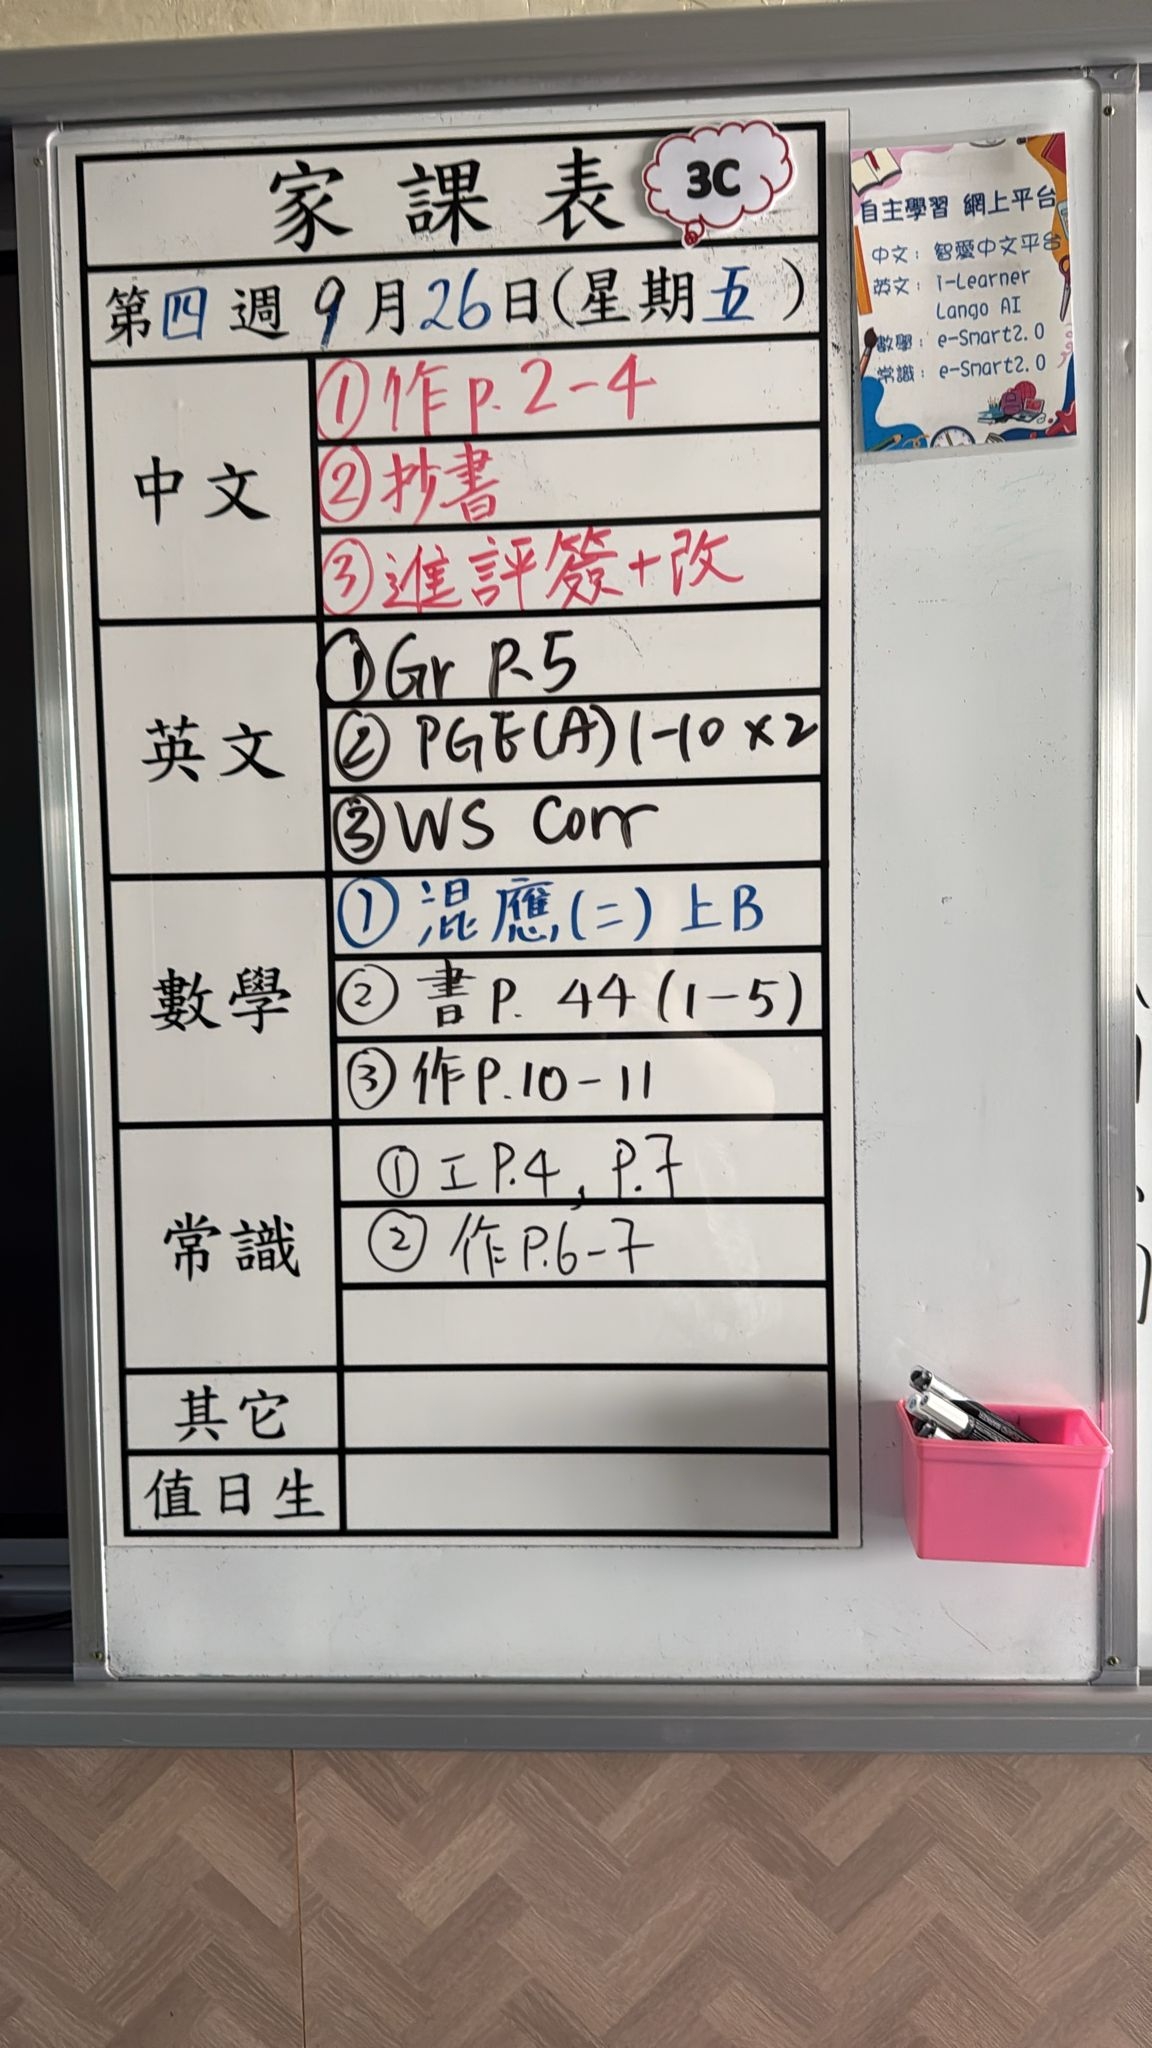 家課表
3C
第四週 9月26日(星期五)
中文
①作P.2-4
②抄書
③進評簽+改
英文
①Gr P.5
②PGE(A)1-10 x2
③WS Corr
數學
①混應(二)上B
②書P. 44 (1-5)
③作P.10-11
常識
①工P.4, P.7
②作P.6-7
其它
值日生
自主學習 網上平台
中文: 智愛中文平台
英文: i-Learner
Lango AI
數學: e-Smart2.0
常識: e-Smart2.0